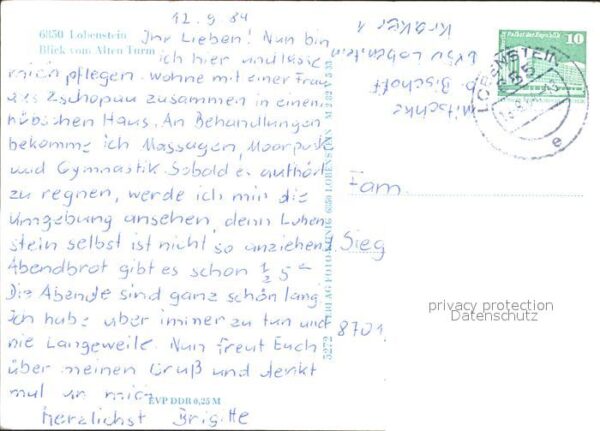 12.9.84
6850 Lobenstein
Blick vom Alten Turm
Ihr Lieben! Nun bin
ich hier und lasse
mich pflegen. wohne mit einer Frau
aus Zschopau zusammen in einem
hübschen Haus. An Behandlungen
bekomme ich Massagen, Moorpack
und Gymnastik. Sobald es aufhört
zu regnen, werde ich mir die
Umgebung ansehen, denn Loben
stein selbst ist nicht so anziehen
Abendbrot gibt es schon ½ 5
Die Abende sind ganz schön lang
ich habe aber immer zu tun und
nie Langeweile. Nun freut Euch
über meinen Gruß und denkt
mal an mich
Herzlichst Brigitte
EVP DDR 0,25 M
5272 VERLAG FOTO-KÖNIG 6850 LOBENSTEIN
Mitschke
b. Bischoff
6850 Lobenstein
10
LOBENSTEIN
e
Fam.
Sieg
8701
privacy protection
Datenschutz